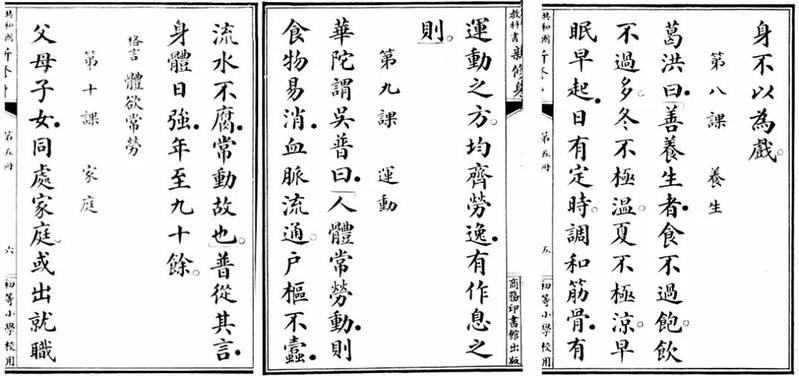 身不以為戲。
第八課 養生
葛洪曰．「善養生者．食不過飽。飲
不過多。冬不極溫。夏不極涼。早
眠早起．日有定時。調和筋骨．有
共和國 第五冊 五 初等小學校用
教科書 新修身 商務印書館出版
運動之方。均齊勞逸．有作息之
則。」
第九課 運動
華陀謂吳普曰．「人體常勞動．則
食物易消．血脈流通。戶樞不蠹．
流水不腐．常動故也。」普從其言．
身體日強．年至九十餘。
格言 體欲常勞
第十課 家庭
父母子女．同處家庭。或出就職
共和國 第五冊 六 初等小學校用